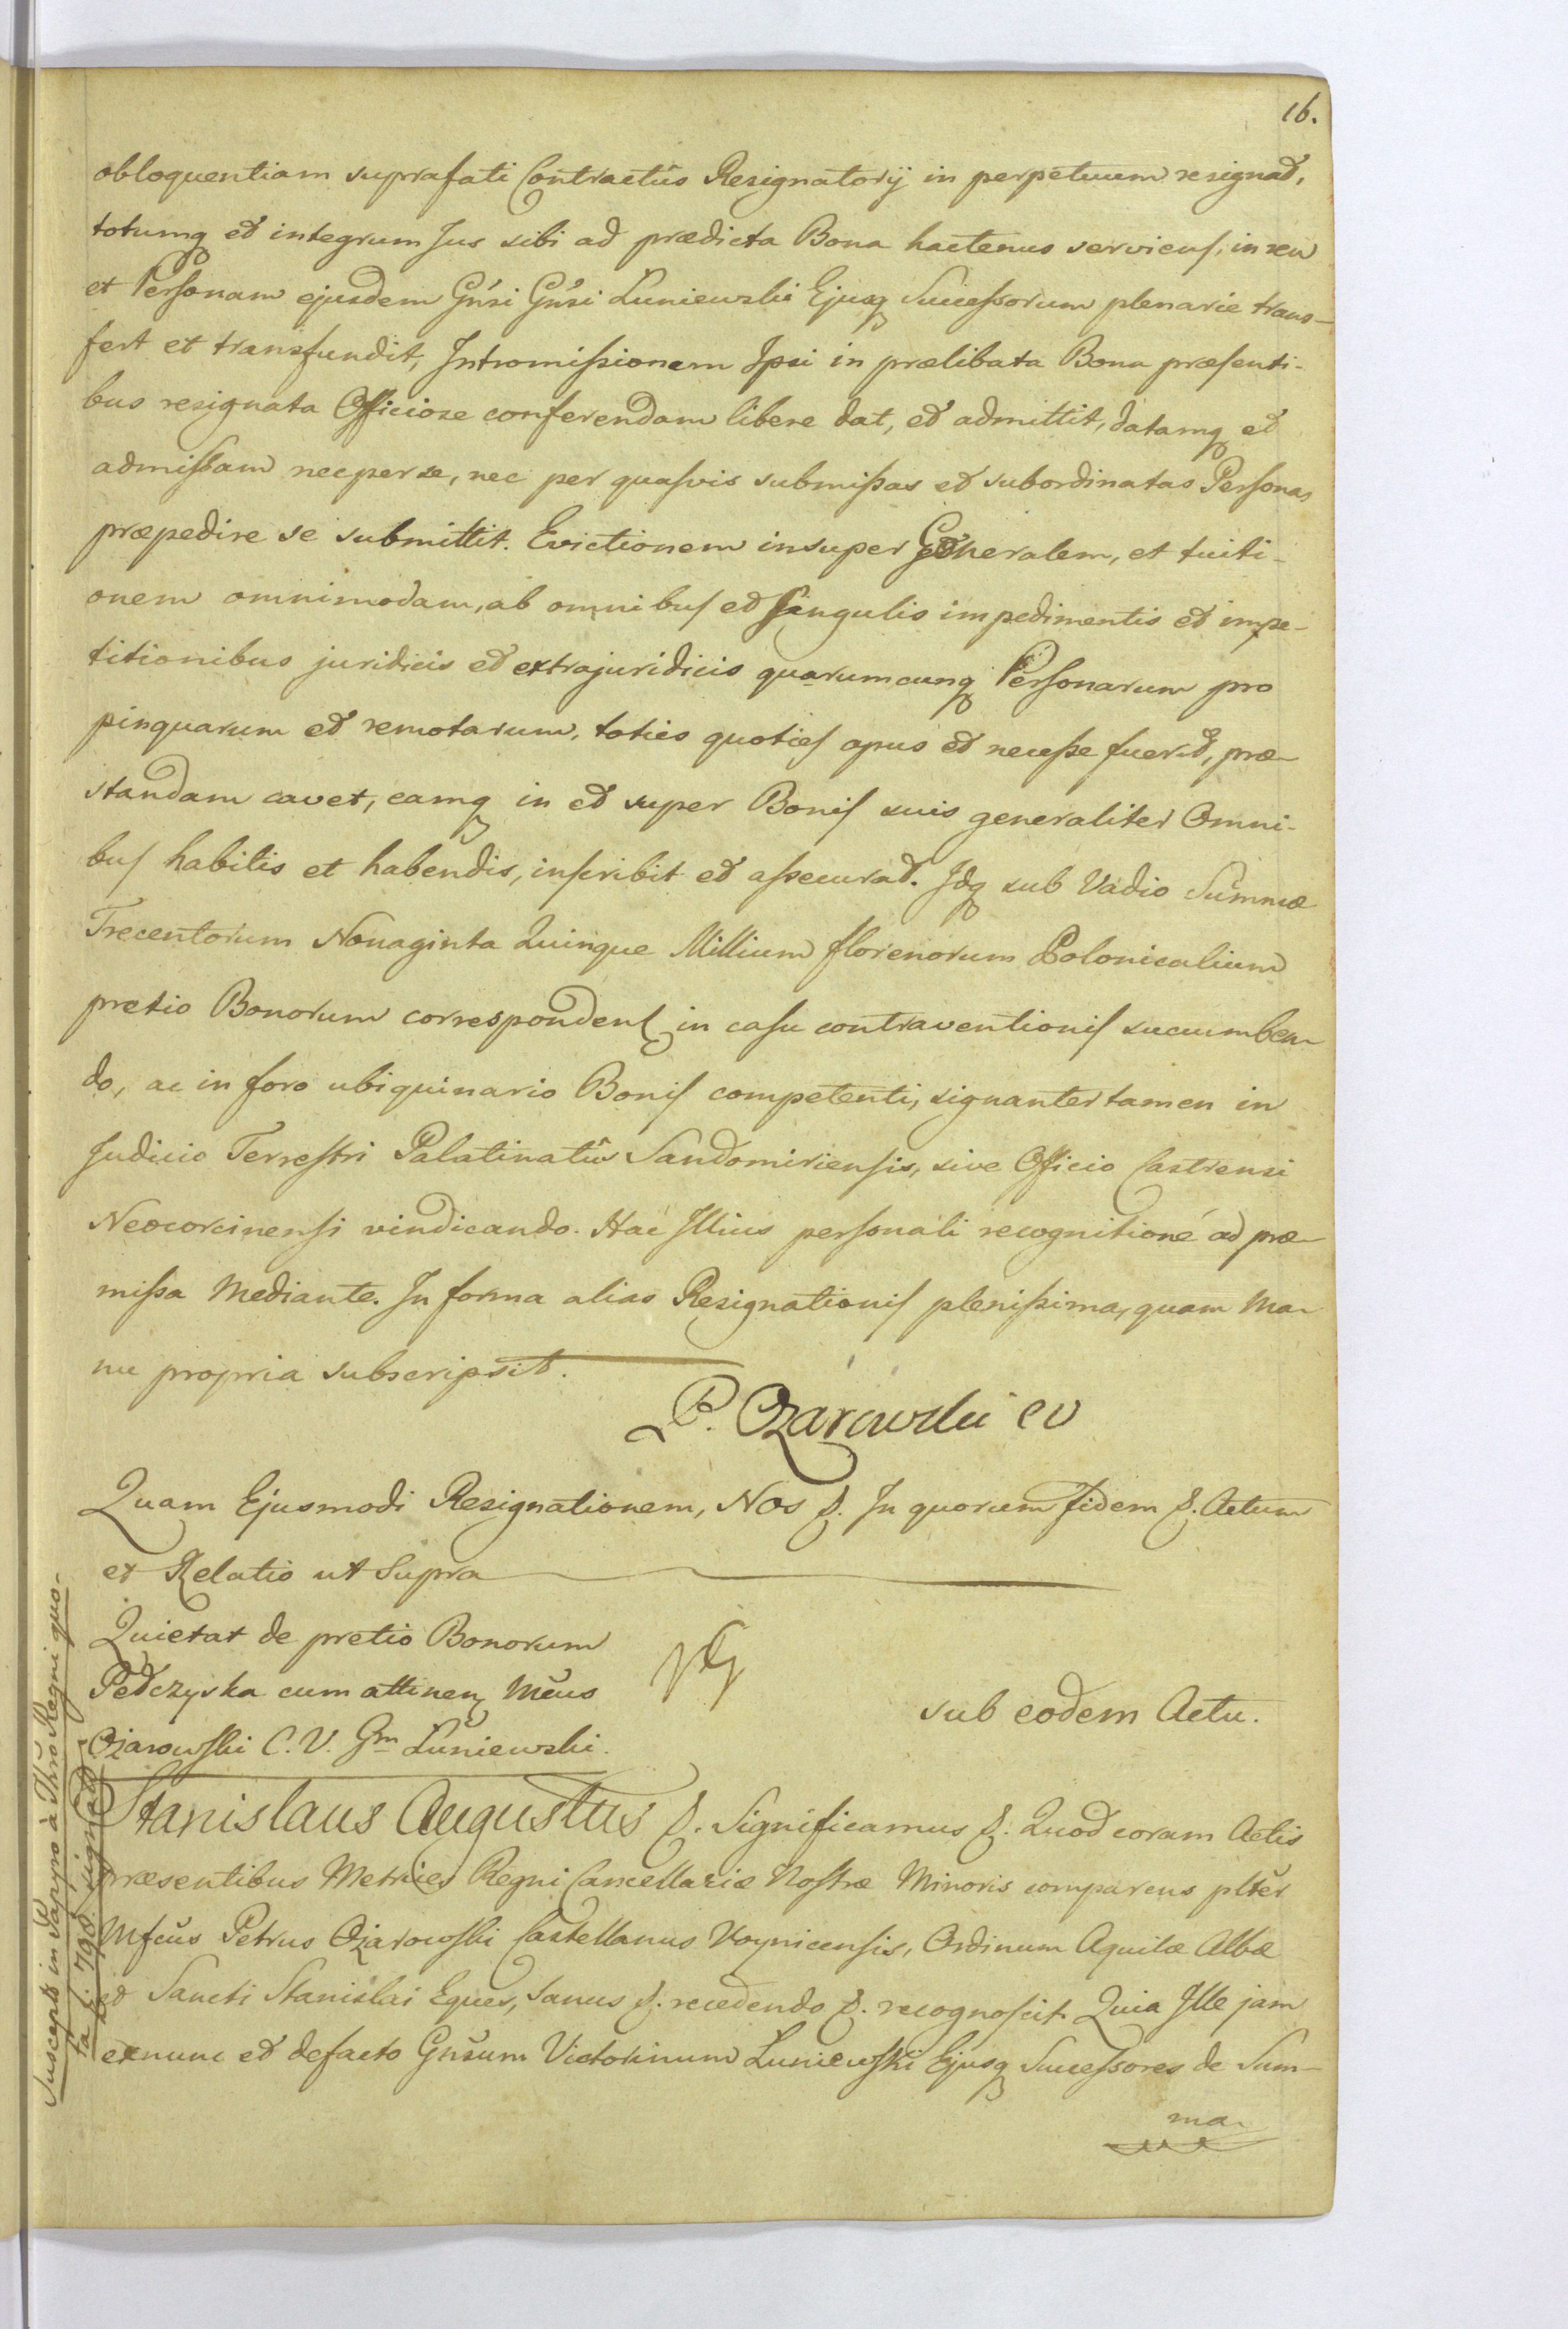 16.
obloquentiam suprafati Contractûs Resignatorij in perpetuum resignat,
totumq et integrum Jus sibi ad prædicta Bona hactenus serviens, in rem
et Personam ejusdem Gnsi Gnsi Łuniewski Ejusq Successorum plenarie trans-
fert et transfundit, Intromissionem Ipsi in prælibata Bona præsenti-
bus resignata Officiose conferendam libere dat, et admittit, datamq et
admissam nec per se, nec per quasvis submissas et subordinatas Personas
præpedire se submittit. Evictionem insuper Generalem, et tuiti-
onem omnimodam, ab omnibus et singulis impedimentis et impe-
titionibus juridicis et extrajuridicis quarumcunq Personarum pro
pinquarum et remotarum, toties quoties opus et necesse fuerit, præ-
standam cavet, eamq in et super Bonis suis generaliter Omni-
bus habitis et habendis, inscribit et assecurat. Idq sub Vadio Summæ
Trecentorum Nonaginta Quinque Millium florenorum Polonicalium
pretio Bonorum correspondens in casu contraventionis succumben-
do, ac in foro ubiquinario Bonis competenti, signanter tamen in
Judicio Terrestri Palatinatûs Sandomiriensis, sive Officio Castrensi
Neocorcinensi vindicando. Hac Illius personali recognitione ad præ-
missa Mediante. In forma alias Resignationis plenissima, quam Ma-
nu propria subscripsit.
P. Ożarowski CV
Quam Ejusmodi Resignationem, Nos &. In quorum fidem &. Actum
et Relatio ut Supra
Quietat de pretio Bonorum
Pełczyska cum attinen. Mcus
Ożarowski C. V. Gm Łuniewski.
sub eodem Actu.
Stanislaus Augustus &. Significamus &. Quod coram Actis
præsentibus Metrices Regni Cancellariæ Nostræ Minoris comparens plter
Mfcus Petrus Ożarowski Castellanus Voynicensis, Ordinum Aquilæ Albæ
et Sancti Stanislai Eques, sanus &. recedendo &. recognoscit. Quia Ille jam
exnunc et defacto Gnsum Victorinum Łuniewski Ejusq Successores de Sum-
ma
Suscepta in Papyro à Thro Regni quo-
ta f. 798. signata